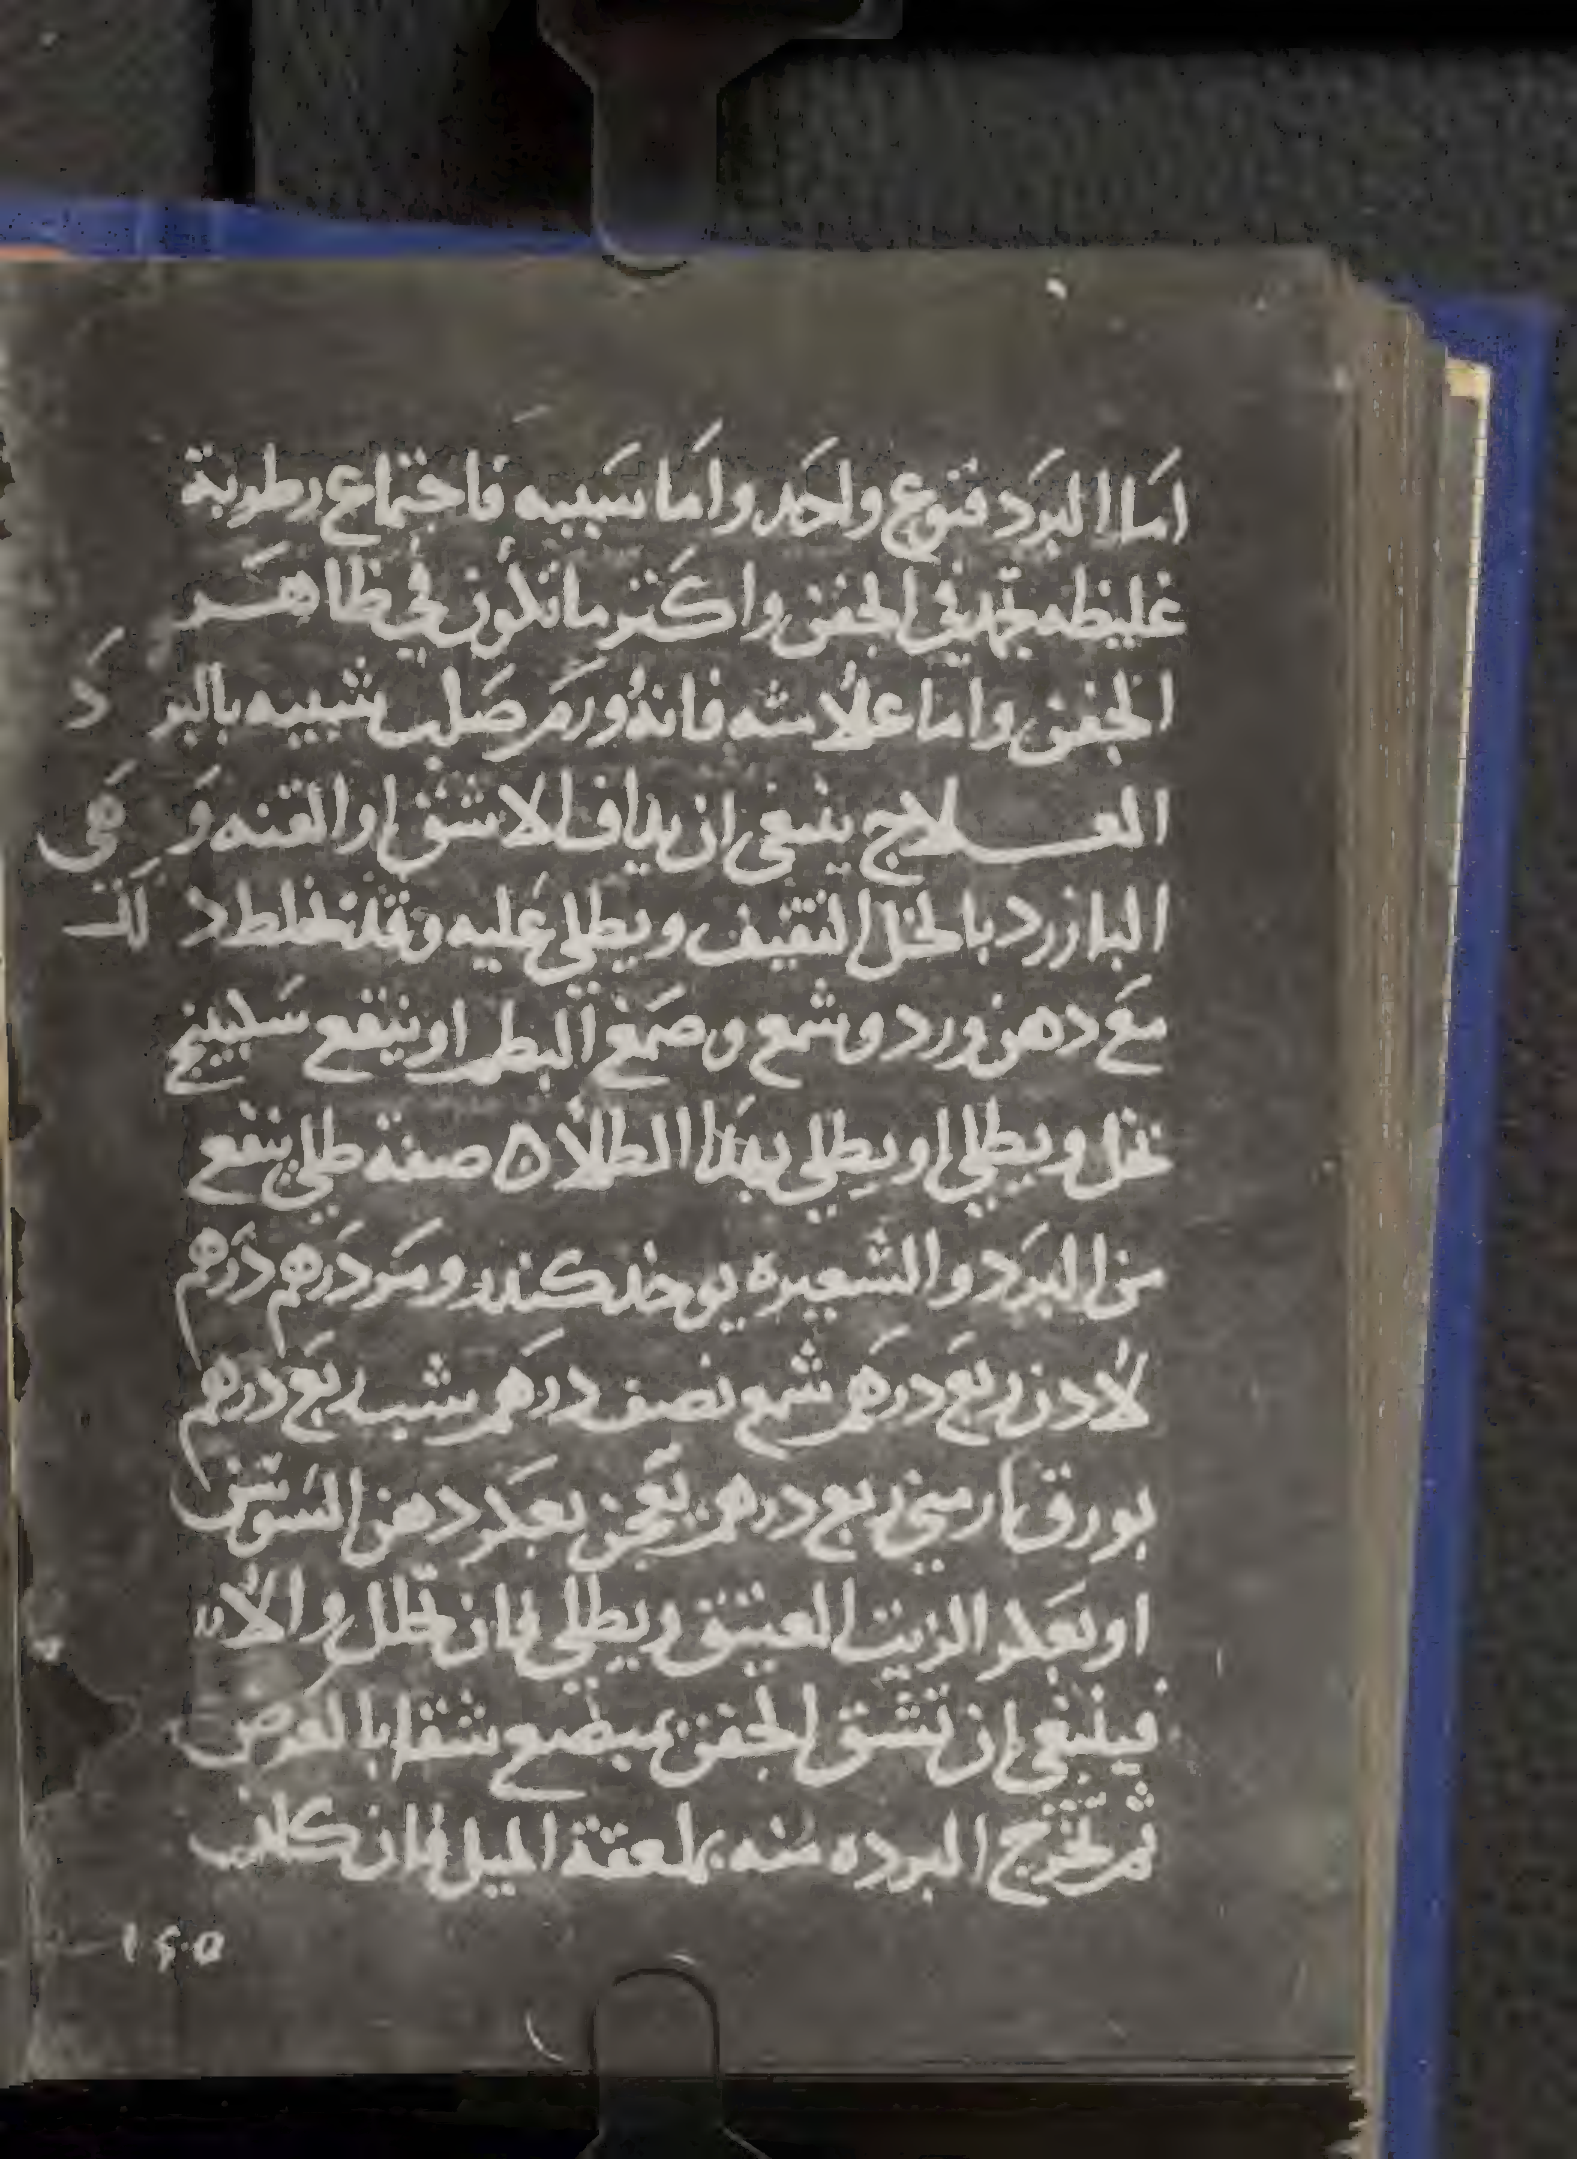 اما البرد فنوع واحد واما سببه فاجتماع رطوبة
غليظه تجمد في الجفن واكثر ما تكون في ظاهر
الجفن واما علامته فانه ورم صلب شبيه بالبرد
العلاج ينبغي ان يداف الاشق او القنه وهي
البازرد بالخل الثقيف ويطلى عليه وقد تخلط ذلك
مع دهن ورد وشمع وصمغ البطم او ينقع سكبينج
بخل ويطلى او يطلى بهذا الطلا ه صفة طلى ينفع
من البرد والشعيره يوخذ كندر ومر درهم درهم
لادن ربع درهم شمع نصف درهم شب ربع درهم
بورق ارمني ربع درهم يعجن بعكر دهن السوسن
او بعكر الزيت العتيق ويطلى فان تحلل والا
فينبغي ان تشق الجفن بمبضع شقا بالعرض
ثم تخرج البرده منه بملعقة الميل فان كانت
١٢٥